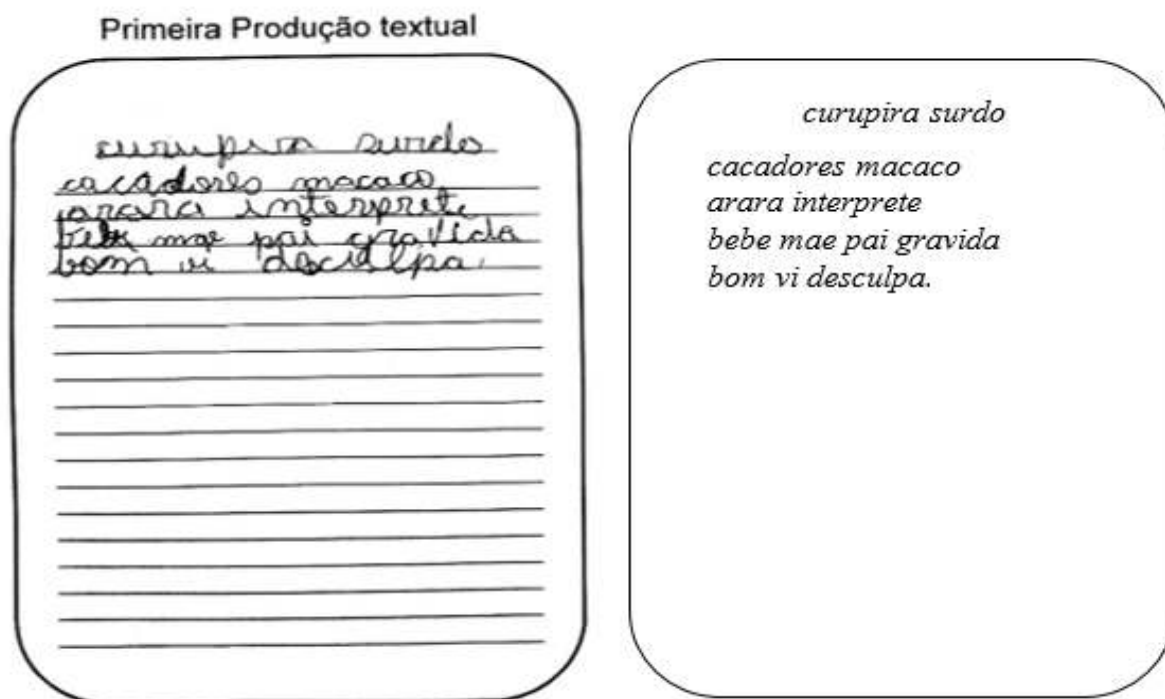 Primeira Produção textual
curupira surdo
cacadores macaco
arara interprete
bebe mae pai gravida
bom vi desculpa.
curupira surdo
cacadores macaco
arara interprete
bebe mae pai gravida
bom vi desculpa.